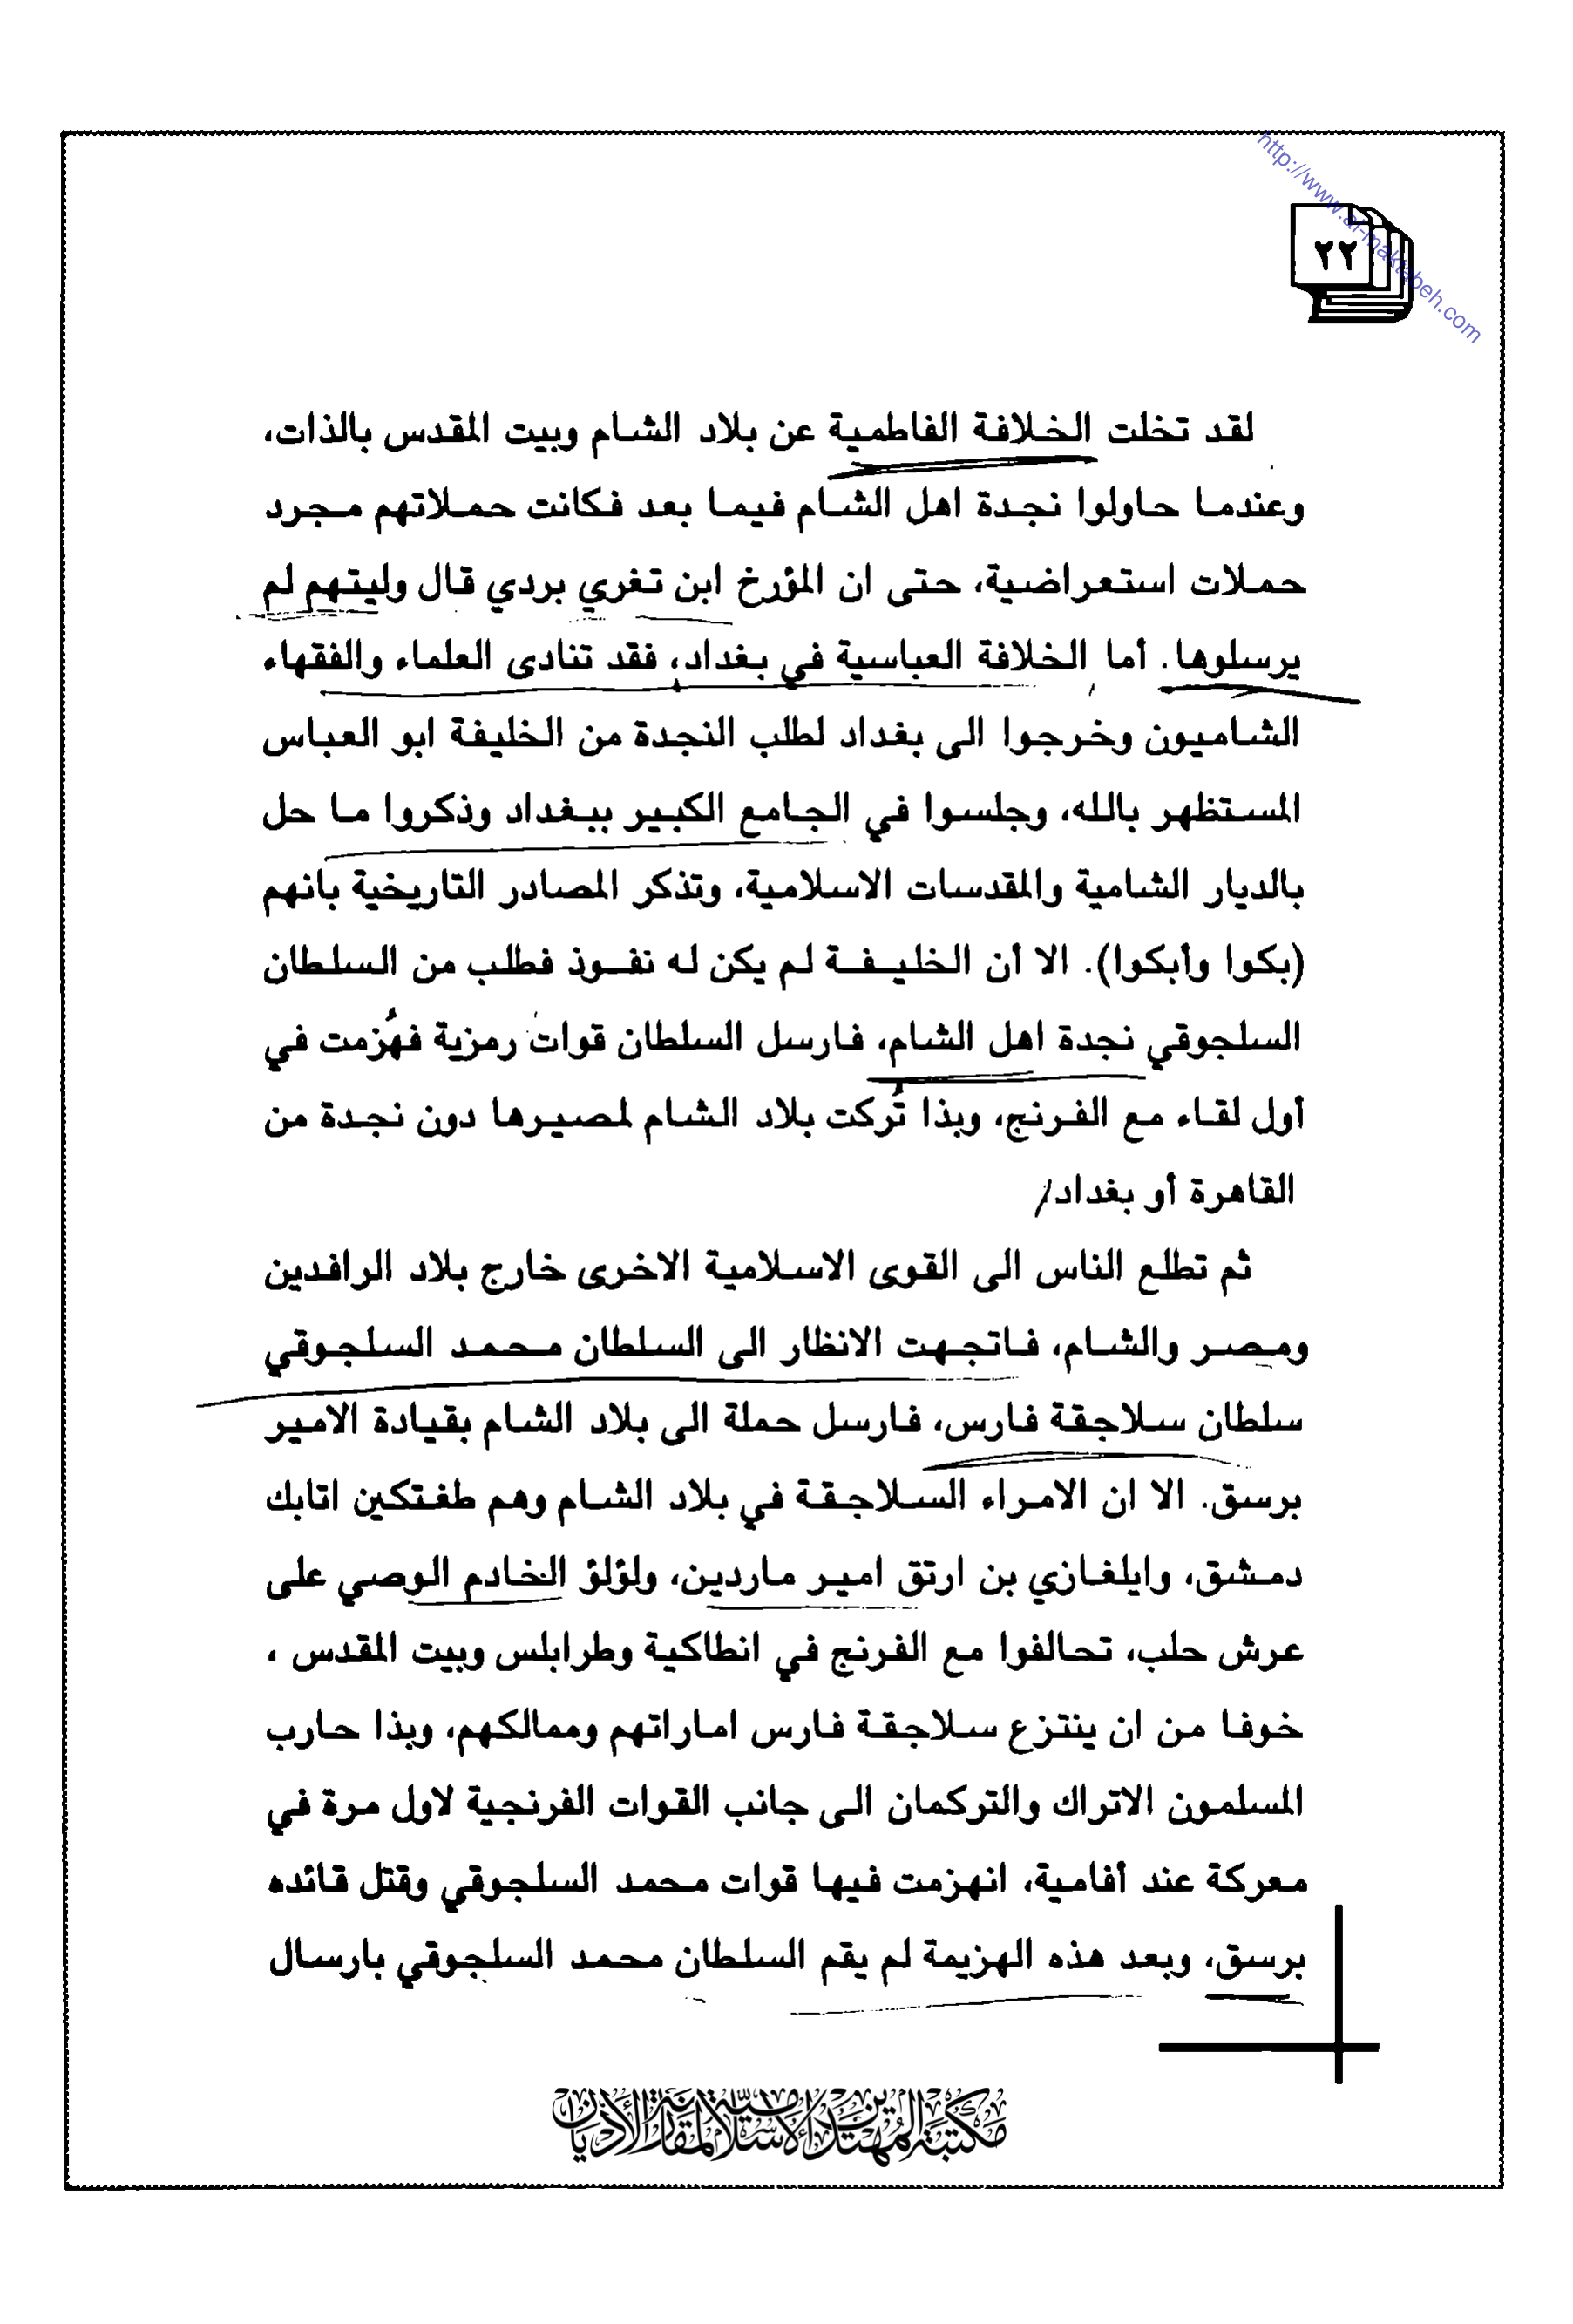 http://www.al-maktabeh.com
٢٢
لقد تخلت الخلافة الفاطمية عن بلاد الشام وبيت المقدس بالذات،
وعندما حاولوا نجدة اهل الشام فيما بعد فكانت حملاتهم مجرد
حملات استعراضية، حتى ان المؤرخ ابن تغري بردي قال وليتهم لم
يرسلوها. أما الخلافة العباسية في بغداد، فقد تنادى العلماء والفقهاء
الشاميون وخرجوا الى بغداد لطلب النجدة من الخليفة ابو العباس
المستظهر بالله، وجلسوا في الجامع الكبير ببغداد وذكروا ما حل
بالديار الشامية والمقدسات الاسلامية، وتذكر المصادر التاريخية بانهم
(بكوا وأبكوا). الا أن الخليفة لم يكن له نفوذ فطلب من السلطان
السلجوقي نجدة اهل الشام، فارسل السلطان قوات رمزية فهُزمت في
أول لقاء مع الفرنج، وبذا تُركت بلاد الشام لمصيرها دون نجدة من
القاهرة أو بغداد/
ثم تطلع الناس الى القوى الاسلامية الاخرى خارج بلاد الرافدين
ومصر والشام، فاتجهت الانظار الى السلطان محمد السلجوقي
سلطان سلاجقة فارس، فارسل حملة الى بلاد الشام بقيادة الامير
برسق. الا ان الامراء السلاجقة في بلاد الشام وهم طغتكين اتابك
دمشق، وايلغازي بن ارتق امير ماردين، ولؤلؤ الخادم الوصي على
عرش حلب، تحالفوا مع الفرنج في انطاكية وطرابلس وبيت المقدس ،
خوفا من ان ينتزع سلاجقة فارس اماراتهم وممالكهم، وبذا حارب
المسلمون الاتراك والتركمان الى جانب القوات الفرنجية لاول مرة في
معركة عند أفامية، انهزمت فيها قوات محمد السلجوقي وقتل قائده
برسق، وبعد هذه الهزيمة لم يقم السلطان محمد السلجوقي بارسال
مكتبة المهتدين الإسلامية لمقارنة الأديان